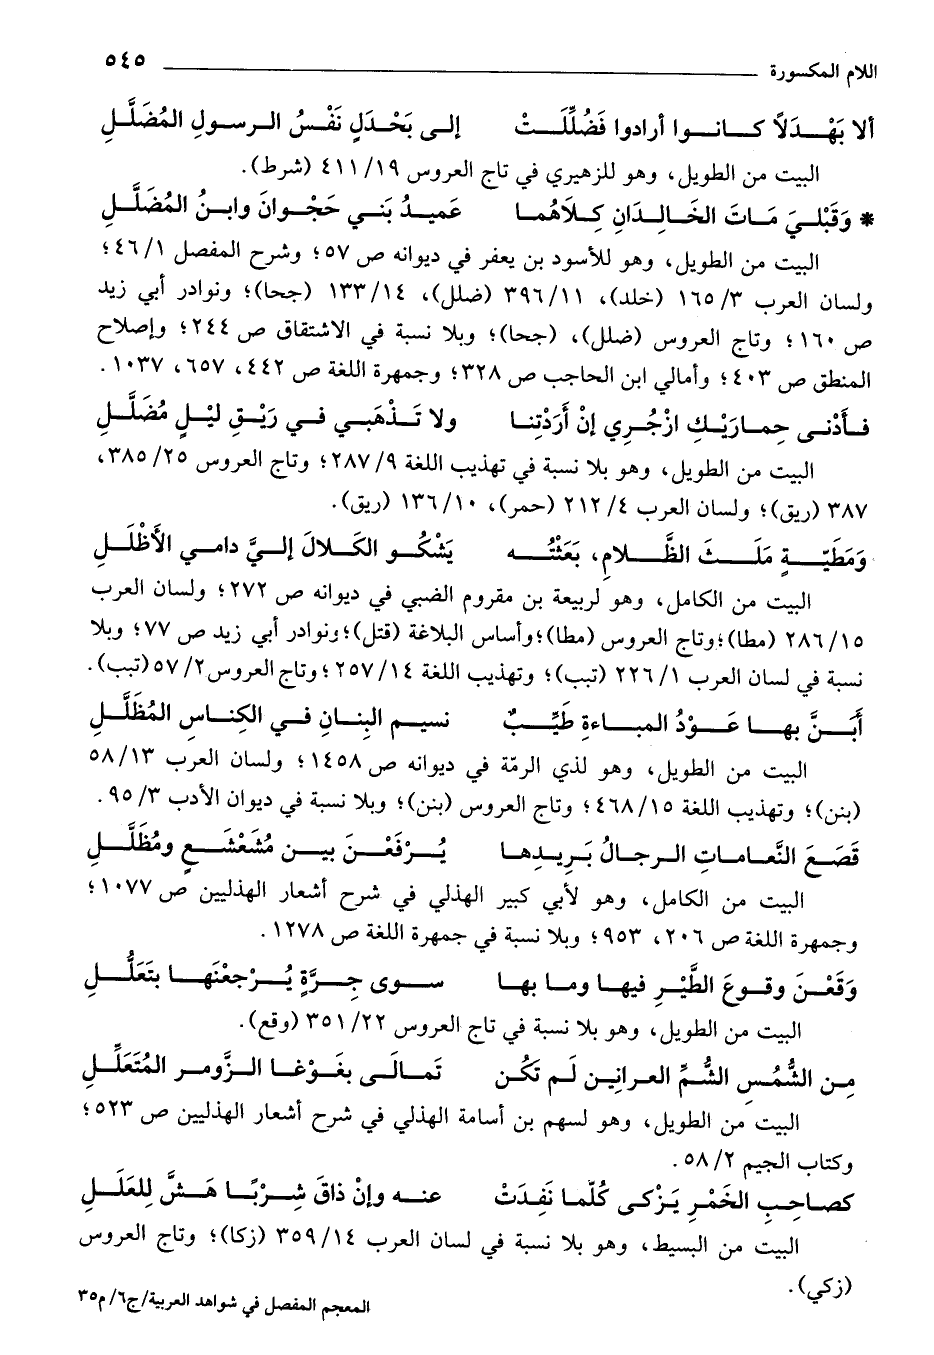 اللام المكسورة ٥٤٥
ألا بَهْدَلاً كانوا أرادوا فَضُلِّلَتْ إلى بَحْدَلٍ نَفْسُ الرسولِ المُضَلَّلِ
البيت من الطويل، وهو للزهيري في تاج العروس ٤١١/١٩ (شرط).
* وَقَبْلِيَ مَاتَ الخَالِدَانِ كِلَاهُما عَمِيدُ بَني حَجْوانَ وابنُ المُضَلَّلِ
البيت من الطويل، وهو للأسود بن يعفر في ديوانه ص ٥٧؛ وشرح المفصل ٤٦/١؛
ولسان العرب ١٦٥/٣ (خلد)، ٣٩٦/١١ (ضلل)، ١٣٣/١٤ (جحا)؛ ونوادر أبي زيد
ص ١٦٠؛ وتاج العروس (ضلل)، (جحا)؛ وبلا نسبة في الاشتقاق ص ٢٤٤؛ وإصلاح
المنطق ص ٤٠٣؛ وأمالي ابن الحاجب ص ٣٢٨؛ وجمهرة اللغة ص ٤٤٢، ٦٥٧، ١٠٣٧.
فأدْنى حِمارَيْكِ ازْجُرِي إنْ أَرَدْتِنا ولا تَذْهَبي في رَيْقِ لَيْلٍ مُضَلَّلِ
البيت من الطويل، وهو بلا نسبة في تهذيب اللغة ٢٨٧/٩؛ وتاج العروس ٣٨٥/٢٥،
٣٨٧ (ريق)؛ ولسان العرب ٢١٢/٤ (حمر)، ١٣٦/١٠ (ريق).
وَمَطِيَّةٍ مَلَثَ الظَّلامِ، بَعَثْتُه يَشْكُو الكَلالَ إليَّ دامي الأَظْلَلِ
البيت من الكامل، وهو لربيعة بن مقروم الضبي في ديوانه ص ٢٧٢؛ ولسان العرب
٢٨٦/١٥ (مطا)؛ وتاج العروس (مطا)؛ وأساس البلاغة (قتل)؛ ونوادر أبي زيد ص ٧٧؛ وبلا
نسبة في لسان العرب ٢٢٦/١ (تبب)؛ وتهذيب اللغة ٢٥٧/١٤؛ وتاج العروس ٥٧/٢ (تبب).
أَبَنَّ بها عَوْدُ المباءةِ طَيِّبٌ نسيم البِنانِ في الكِناسِ المُظَلَّلِ
البيت من الطويل، وهو لذي الرمّة في ديوانه ص ١٤٥٨؛ ولسان العرب ٥٨/١٣
(بنن)؛ وتهذيب اللغة ٤٦٨/١٥؛ وتاج العروس (بنن)؛ وبلا نسبة في ديوان الأدب ٩٥/٣.
قَصَعَ النَّعاماتِ الرجالُ بَرِيدِها يُرْفَعْنَ بين مُشَعْشَعٍ ومُظَلَّلِ
البيت من الكامل، وهو لأبي كبير الهذلي في شرح أشعار الهذليين ص ١٠٧٧؛
وجمهرة اللغة ص ٢٠٦، ٩٥٣؛ وبلا نسبة في جمهرة اللغة ص ١٢٧٨.
وَقَعْنَ وقوعَ الطَّيْرِ فيها وما بها سوى جِرَّةٍ يُرْجِعْنَها بتَعَلُّلِ
البيت من الطويل، وهو بلا نسبة في تاج العروس ٣٥١/٢٢ (وقع).
مِن الشُّمُسِ الشُّمِّ العرانِين لَم تَكُن تَمالَى بغَوْغا الزَّومرِ المُتَعَلِّلِ
البيت من الطويل، وهو لسهم بن أسامة الهذلي في شرح أشعار الهذليين ص ٥٢٣؛
وكتاب الجيم ٥٨/٢.
كصاحِبِ الخَمْرِ يَزْكى كُلّما نَفِدَتْ عنه وإنْ ذاقَ شِرْبًا هَشَّ لِلعَلَلِ
البيت من البسيط، وهو بلا نسبة في لسان العرب ٣٥٩/١٤ (زكا)؛ وتاج العروس
(زكي).
المعجم المفصل في شواهد العربية/ج٦/م٣٥